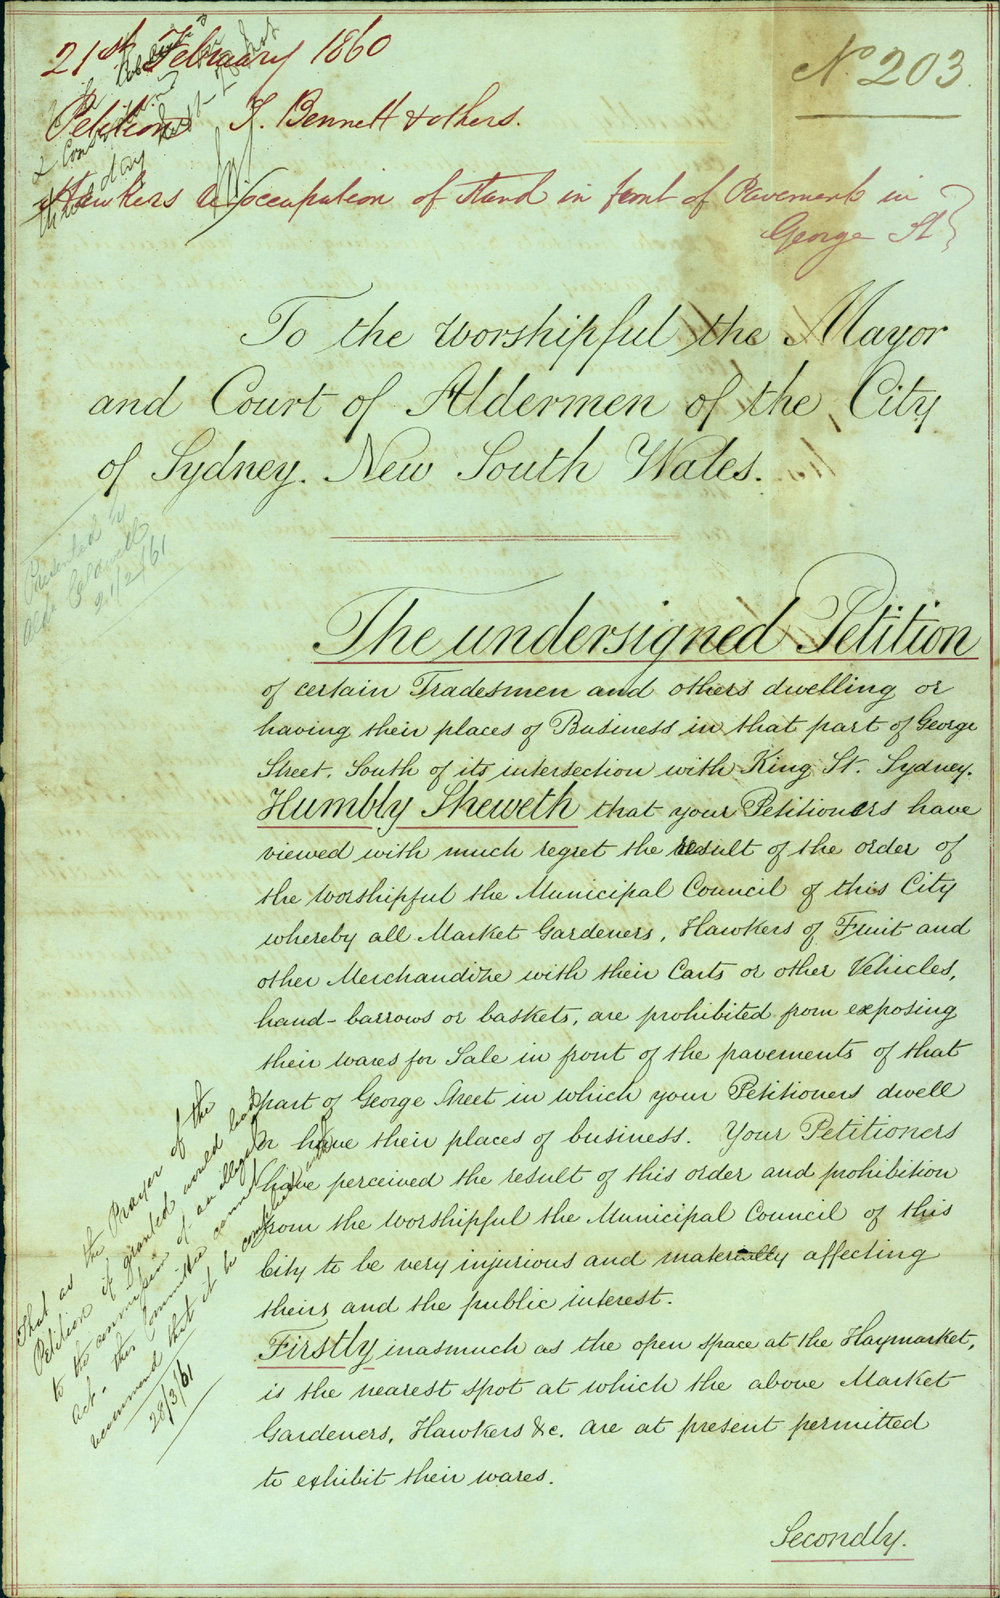 21st February 1860
No 203
Petition J. Bennett & others.
Hawkers re occupation of Stand in front of Pavement in
George St
To the Worshipful the Mayor
and Court of Aldermen of the City
of Sydney. New South Wales.
Presented by
Ald Caraher
21/2/61
The undersigned Petition
of certain Tradesmen and others dwelling or
having their places of Business in that part of George
Street, South of its intersection with King St. Sydney.
Humbly Sheweth that your Petitioners have
viewed with much regret the result of the order of
the Worshipful the Municipal Council of this City
whereby all Market Gardeners, Hawkers of Fruit and
other Merchandize with their Carts or other Vehicles,
hand-barrows or baskets, are prohibited from exposing
their wares for Sale in front of the pavements of that
part of George Street in which your Petitioners dwell
or have their places of business. Your Petitioners
have perceived the result of this order and prohibition
from the Worshipful the Municipal Council of this
City to be very injurious and materially affecting
theirs and the public interest.
Firstly inasmuch as the open space at the Haymarket,
is the nearest spot at which the above Market
Gardeners, Hawkers &c. are at present permitted
to exhibit their wares.
Secondly.
That as the Prayer of the
Petition if granted would lead
to the commission of an illegal
Act - this Committee cannot
recommend that it be complied with
28/3/61